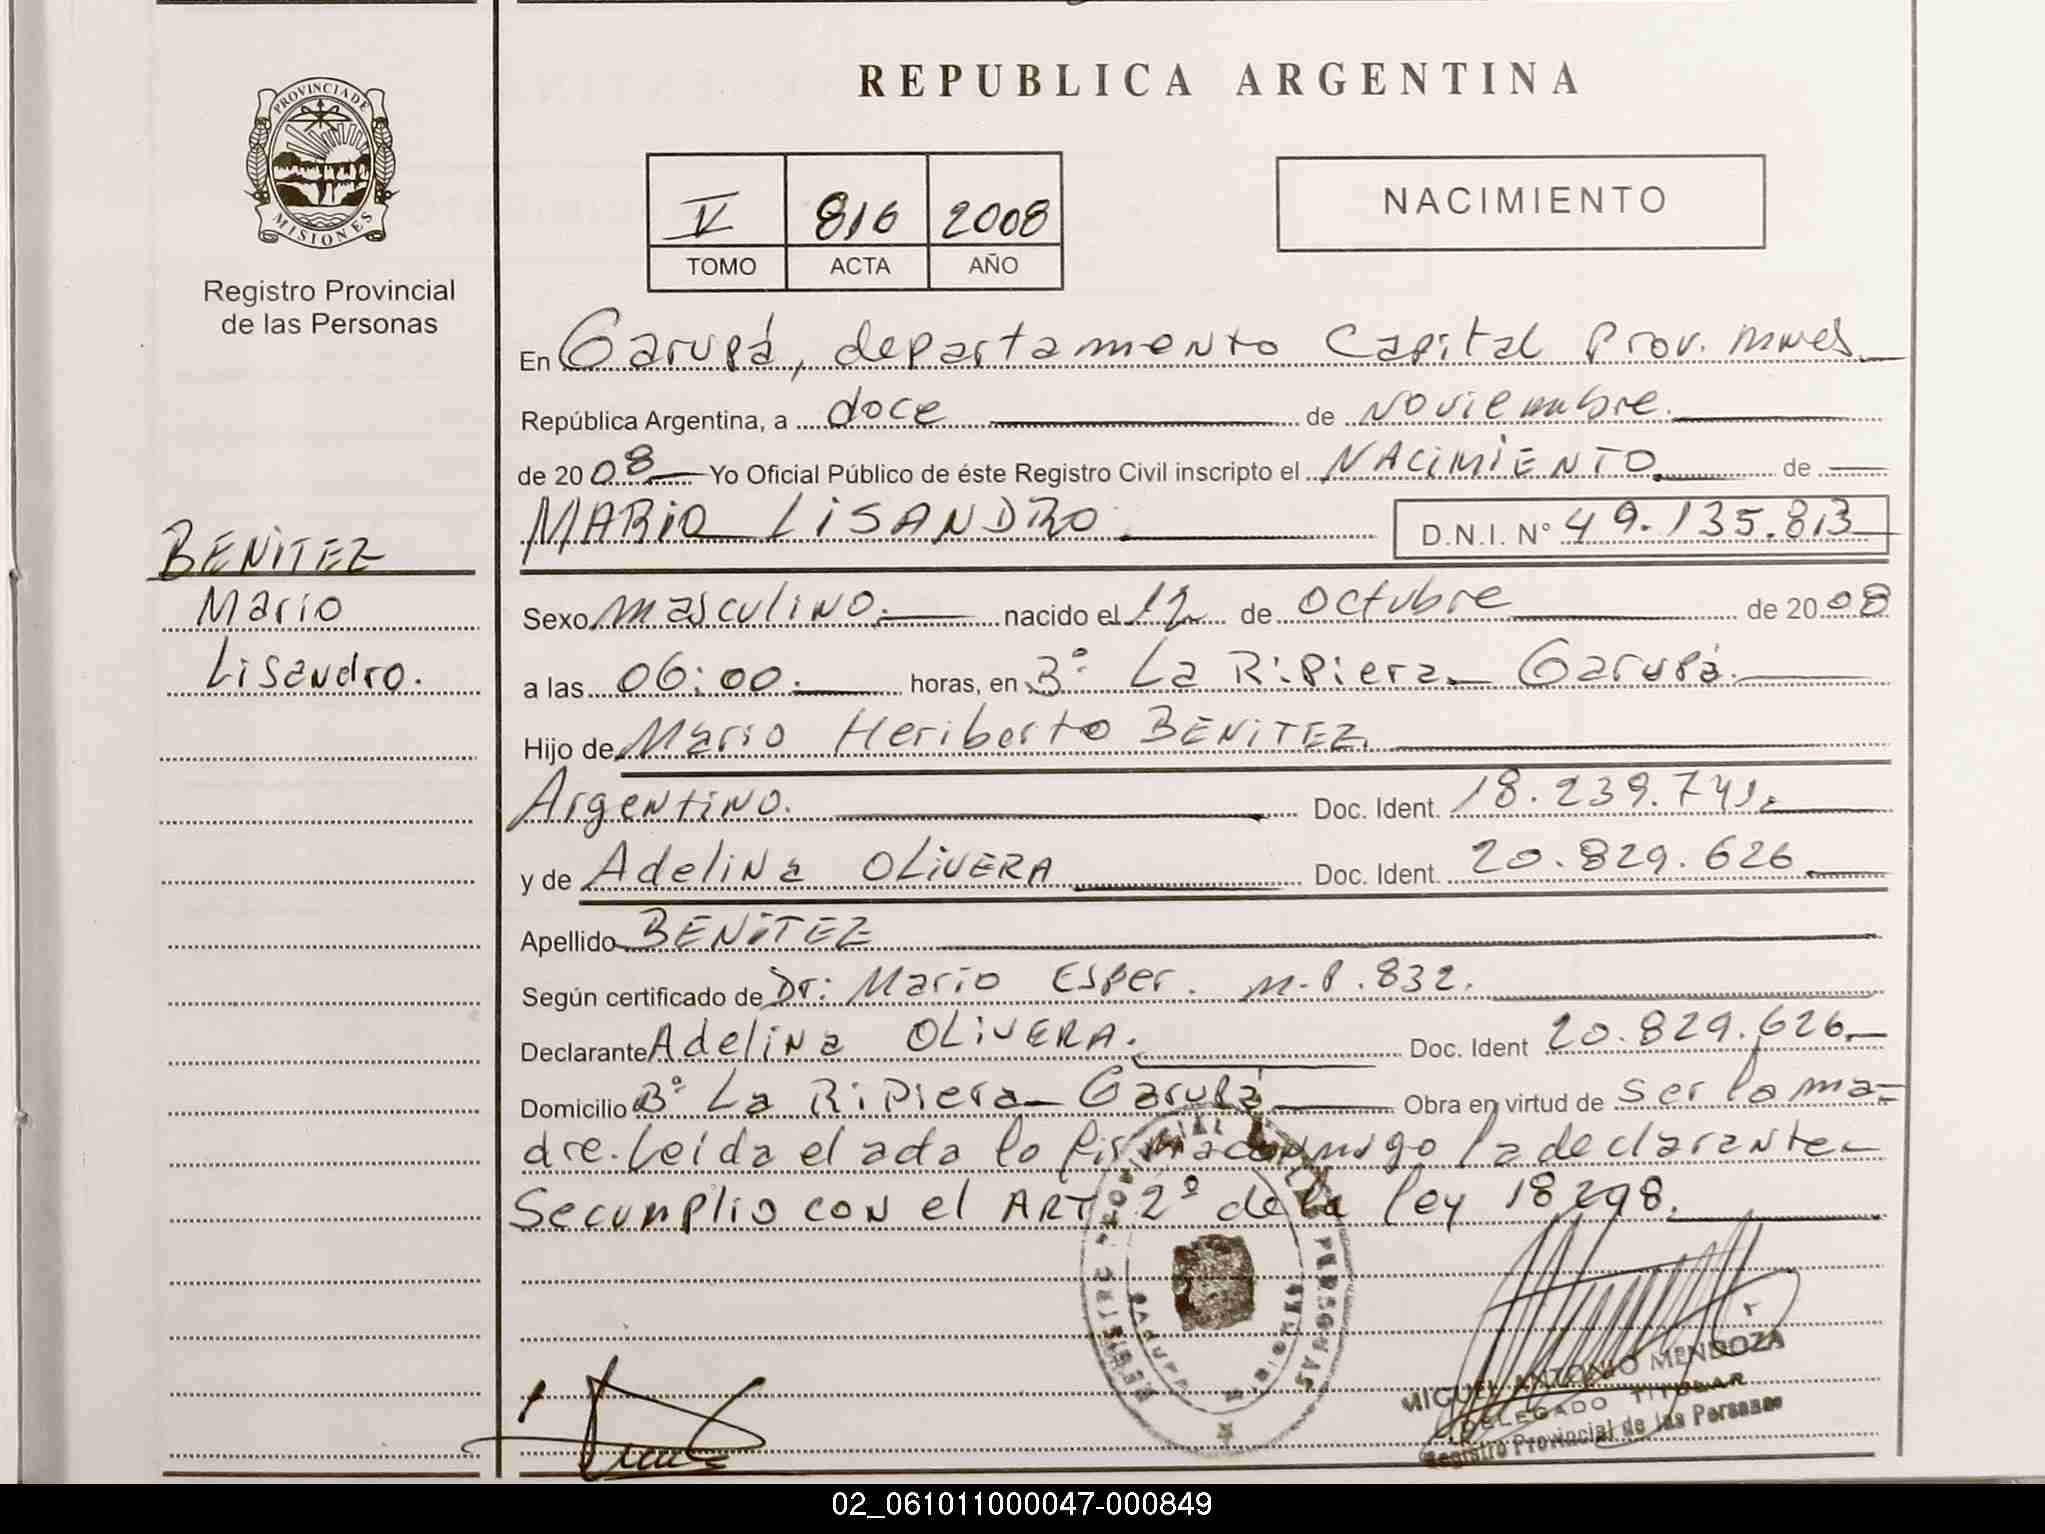 REPUBLICA ARGENTINA
PROVINCIA DE
MISIONES
Registro Provincial
de las Personas
V 816 2008
TOMO ACTA AÑO
NACIMIENTO
En Garupá, departamento Capital Prov. Mnes
República Argentina, a doce de noviembre.
de 2008 Yo Oficial Público de éste Registro Civil inscripto el NACIMIENTO de
MARIO LISANDRO D.N.I. N° 49.135.813
BENITEZ
Mario
Lisandro.
Sexo masculino. nacido el 12 de octubre de 2008
a las 06:00. horas, en B° La Ripiera Garupá.
Hijo de Mario Heriberto BENITEZ.
Argentino. Doc. Ident. 18.239.741.
y de Adelina OLIVERA Doc. Ident. 20.829.626
Apellido BENITEZ
Según certificado de Dr: Mario Esper. M.P.832.
Declarante Adelina OLIVERA. Doc. Ident 20.829.626
Domicilio B° La Ripiera Garupá Obra en virtud de ser la ma-
dre. Leída el acta lo firma conmigo la declarante
Se cumplio con el ART 2° de la ley 18298.
MIGUEL ANTONIO MENDOZA
DELEGADO TITULAR
Registro Provincial de las Personas
02_061011000047-000849